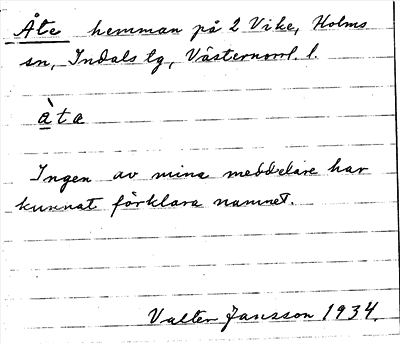 Åte hemman på 2 Vike, Holms
sn, Indals tg, Västernorrl. l.
à t a
Ingen av mina meddelare har
kunnat förklara namnet.
Valter Jansson 1934.